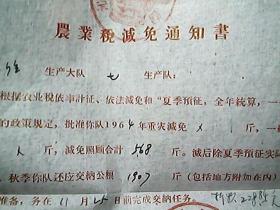 農業稅減免通知書
生产大队 七 生产队：
根据农业税依率计征、依法减免和“夏季预征，全年统算，一
的政策规定，批准你队1964年重灾减免 × 斤，一般
斤，减免照顾合计 568 斤。减后除夏季预征实际
秋季你队还应交纳公粮 1907 斤（包括地方附加在内）
准备，务在11月25日前完成交纳任务。